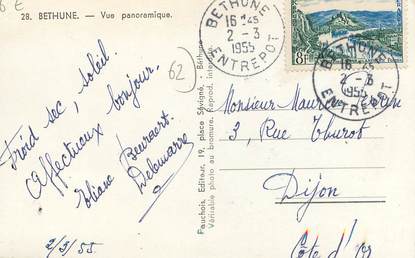 28. BETHUNE. — Vue panoramique.
62
BETHUNE
16 45
2 - 3
1955
ENTREPOT
8F
BETHUNE
16 45
2 - 3
1955
ENTREPOT
Froid sec, soleil.
Affectueux bonjour,
Eliane Beuraert
Delemarre
2/3/55.
Fauchois, Editeur, 19, place Sévigné, Béthune
Véritable photo au bromure. Reprod. inter
Monsieur
3, Rue Thurot
Dijon
Côte d'Or